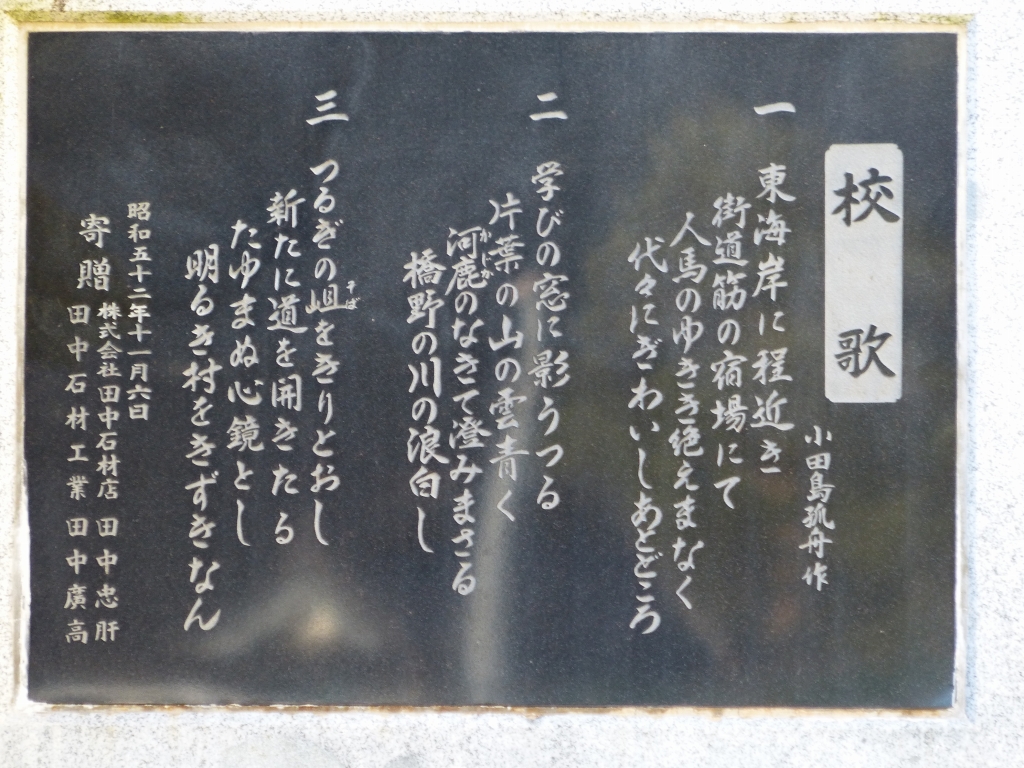 校歌
小田島孤舟作
一 東海岸に程近き
街道筋の宿場にて
人馬のゆきき絶えまなく
代々にぎわいしあとどころ
二 学びの窓に影うつる
片葉の山の雲青く
河鹿のなきて澄みまさる
かじか
橋野の川の浪白し
三 つるぎの岨をきりとおし
そば
新たに道を開きたる
たゆまぬ心鏡とし
明るき村をきずきなん
昭和五十二年十一月六日
寄贈 株式会社田中石材店 田中忠肝
田中石材工業 田中廣高